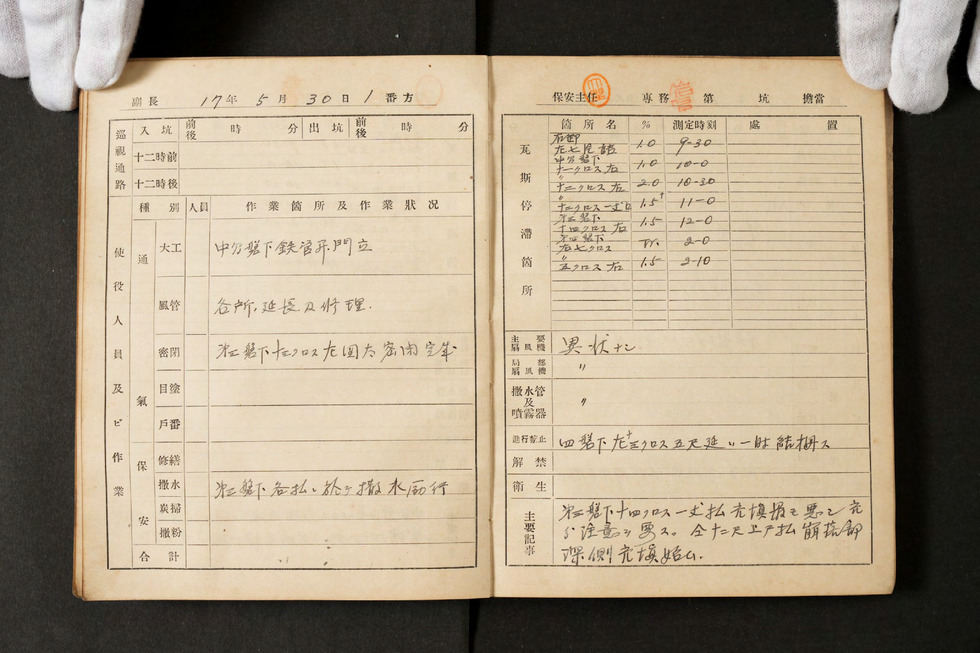 副長 17年 5月 30日 1番方
巡視通路
入坑 前後 時 分 出坑 前後 時 分
十二時前
十二時後
使役人員及ビ作業
種別 人員 作業箇所及作業狀況
通氣
大工 中分盤下鉄管昇門立
風管 各所延長及修理.
密閉 第三盤下十三クロス左国大密閉完成
目塗
戶番
保安
修繕
撒水 第三盤下各払ニ於テ撒水励行
炭掃
撒粉
合計
保安主任 専務 第 坑 擔當
瓦斯停滯箇所
箇所名 % 測定時刻 處置
右卸
左七尺詰 1.0 9-30
中分盤下
十一クロス右 1.0 10-0
〃
十三クロス左 2.0 10-30
〃
十三クロス一丈目 1.5 11-0
第三盤下
十四クロス右 1.5 12-0
第四盤下
左七クロス Tr. 2-0
〃
五クロス右 1.5 2-10
主要扇風機 異状ナシ
局部扇風機 〃
撒水管及噴霧器 〃
進行停止 四盤下左十三クロス五尺延ハ一時結柵ス
解禁
衛生
主要記事
第三盤下十四クロス一丈払充填損モ悪シ充
分注意ヲ要ス。仝十二尺上戸払崩落部
深側充填始ム.